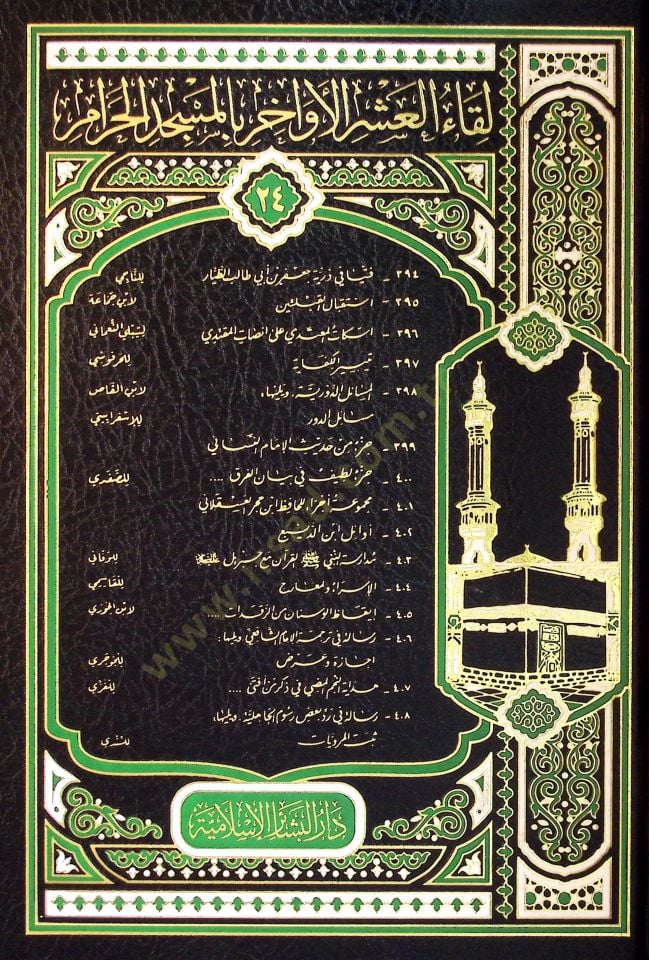 لقاء العشر الأواخر بالمسجد الحرام
٢٤
٣٩٤ - فتيا في ذرية جعفر بن أبي طالب الطيار للناجي
٣٩٥ - استقبال القبلتين لابن جماعة
٣٩٦ - اسكات المعتدي على انصات المقتدي لشبلي النعماني
٣٩٧ - تيسير الكفاية للحرفوشي
٣٩٨ - المسائل الدورية، ويليها، لابن القاص
مسائل الدور للإسفراييني
٣٩٩ - جزء من حديث الإمام النسائي
٤٠٠ - جزء لطيف في بيان الفرق .... للصفدي
٤٠١ - مجموعة أجزاء للحافظ ابن حجر العسقلاني
٤٠٢ - أوائل ابن الديبع
٤٠٣ - مدارسة النبي ﷺ للقرآن مع جبريل للزرقاني
٤٠٤ - الإسراء والمعارج للقاسمي
٤٠٥ - إيقاظ الوسنان من الرقدات .... لابن الجوزي
٤٠٦ - رسالة في ترجمة الإمام الشافعي ويليها:
اجازة وعرض للجوجري
٤٠٧ - هداية النجم المضي في ذكر من أفتى .... للغزي
٤٠٨ - رسالة في رد بعض رسوم الجاهلية، ويليها،
ثبت المرويات للسندي
دار البشائر الإسلامية